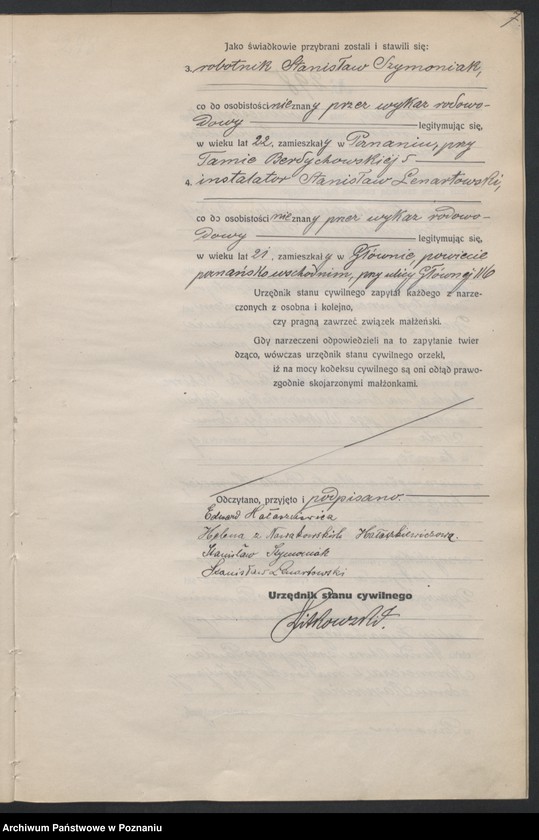 7
Jako świadkowie przybrani zostali i stawili się:
3. robotnik Stanisław Szymoniak,
co do osobistości nieznany przez wykaz rodowo-
dowy legitymując się,
w wieku lat 22, zamieszkały w Poznaniu, przy
Tamie Berdychowskiej 5
4. instalator Stanisław Lenartowski,
co do osobistości nieznany przez wykaz rodowo-
dowy legitymując się,
w wieku lat 21, zamieszkały w Głównie, powiecie
poznańsko wschodnim, przy ulicy Głównej 116
Urzędnik stanu cywilnego zapytał każdego z narze-
czonych z osobna i kolejno,
czy pragną zawrzeć związek małżeński.
Gdy narzeczeni odpowiedzieli na to zapytanie twier
dząco, wówczas urzędnik stanu cywilnego orzekł,
iż na mocy kodeksu cywilnego są oni odtąd prawo-
zgodnie skojarzonymi małżonkami.
Odczytano, przyjęto i podpisano.
Edward
Helena z Nowakowskich
Stanisław Szymoniak
Stanisław Lenartowski
Urzędnik stanu cywilnego
Archiwum Państwowe w Poznaniu